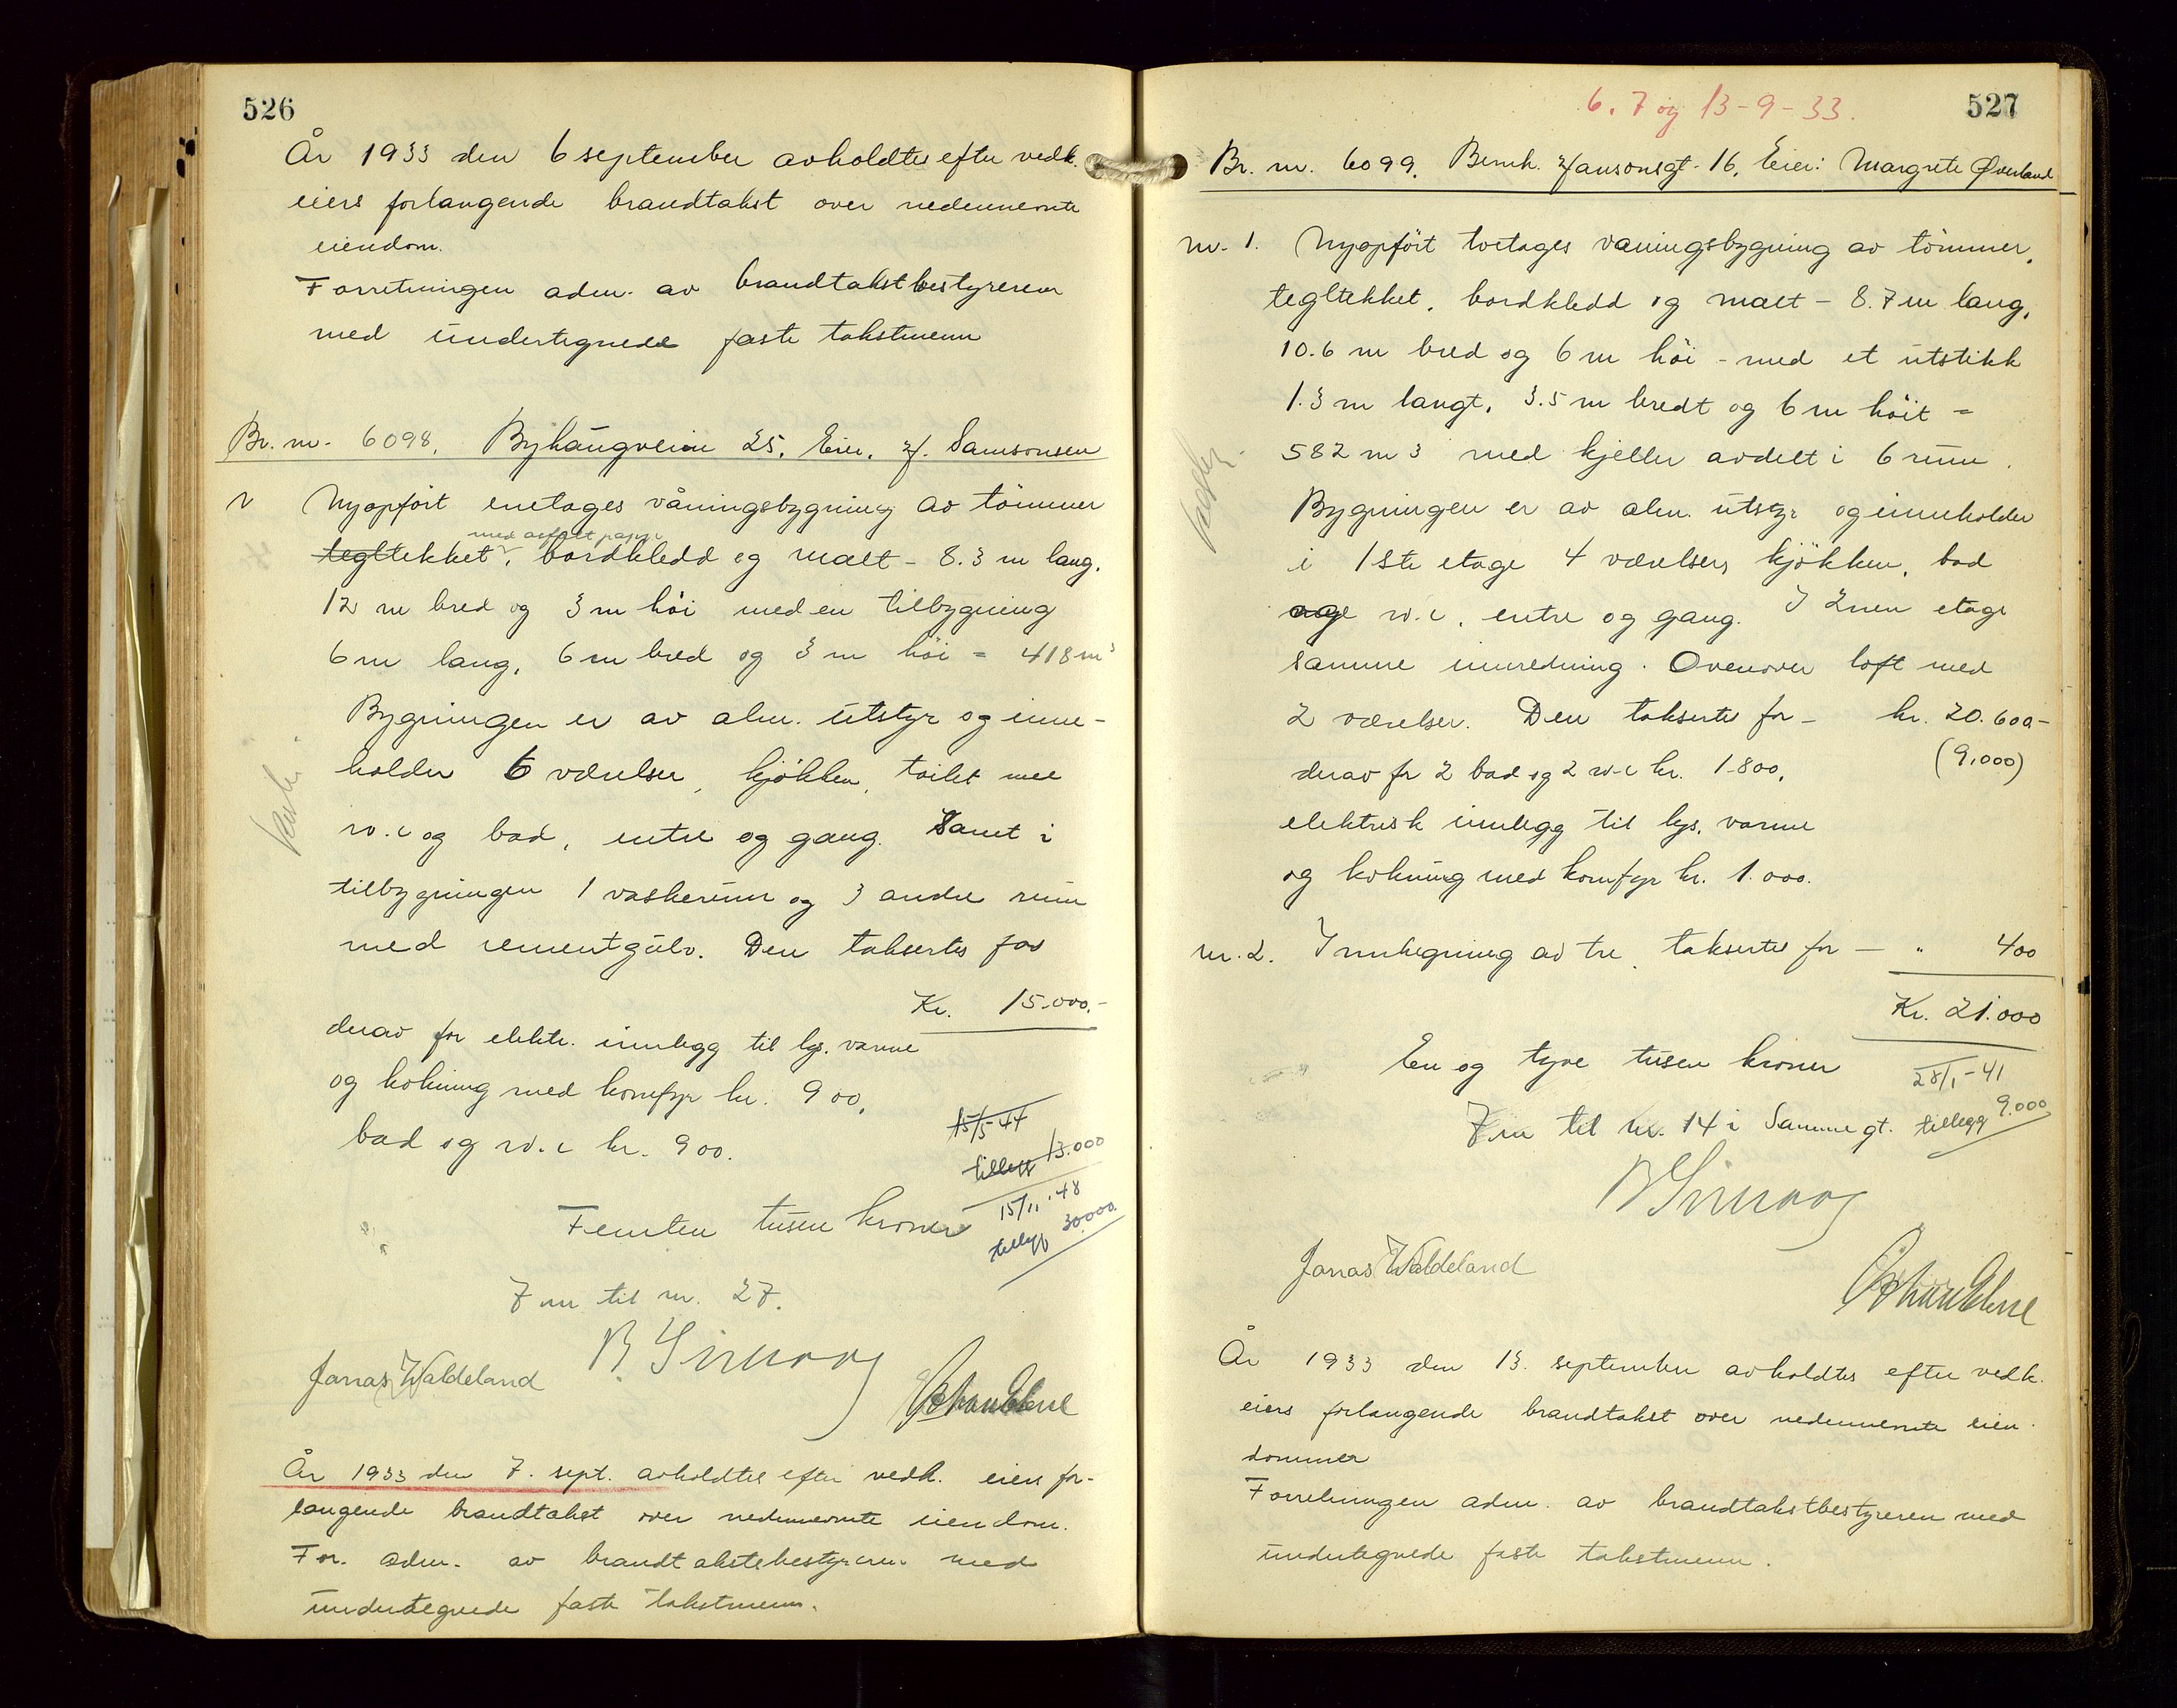 526
År 1933 den 6 september avholdtes efter vedk.
eiers forlangende brandtakst over nedennevnte
eiendom.
Forretningen adm. av brandtakstbestyreren
med undertegnede faste takstmenn
Br. nr. 6098. Byhaugveien 25. Eier. J. Samsonsen
Nyopført enetages våningsbygning av tömmer
med asfalt papp
tegltekket, bordkledd og malt - 8.3 m lang,
12 m bred og 3 m höi med en tilbygning
6 m lang, 6 m bred og 3 m höi = 418 m³
Bygningen er av alm. utstyr og inne-
holder 6 værelser, kjökken, toilet med
w.c og bad, entre og gang. Samt i
tilbygningen 1 vaskerum og 3 andre rum
med sementgulv. Den takseres for
Kr. 15.000.-
derav for elektr. innlegg til lys, varme
og kokning med komfyr kr. 900,
bad og w.c kr. 900.
15/5-44
tillegg 13.000
15/11-'48
tillegg 30000
Femten tusen kroner
7 m til nr. 27.
Jonas Waldeland
År 1933 den 7. sept. avholdtes efter vedk. eiers for-
langende brandtakst over nedennevnte eiendom.
For. adm. av brandtakstbestyreren med
undertegnede faste takstmenn.
6. 7 og 13-9-33.
527
Br. nr. 6099. Bernh. Hansonsgt. 16. Eier: Margrete Øverland
nr. 1. Nyopfört toetages våningsbygning av tömmer,
tegltekket, bordkledd og malt - 8.7 m lang,
10.6 m bred og 6 m höi - med et utstikk
1.3 m langt, 3.5 m bredt og 6 m höit =
582 m3 med kjeller avdelt i 6 rum.
Bygningen er av alm. utstyr og inneholder
i 1ste etage 4 værelser, kjökken, bad
og w.c, entre og gang. I 2nen etage
samme innredning. Ovenover loft med
2 værelser. Den takseres for - kr. 20.600-
derav for 2 bad og 2 w-c kr. 1.800, (9.000)
elektrisk innlegg til lys, varme
og kokning med komfyr kr. 1.000.
nr. 2. Innhegning av tre, takseres for - " 400
Kr. 21.000
En og tyve tusen kroner
28/1-41
7 m til nr. 14 i Samme gt. tillegg 9.000
Jonas Waldeland
År 1933 den 13. september avholdtes efter vedk.
eiers forlangende brandtakst over nedennevnte eien-
dommer
Forretningen adm. av brandtakstbestyreren med
undertegnede faste takstmenn.